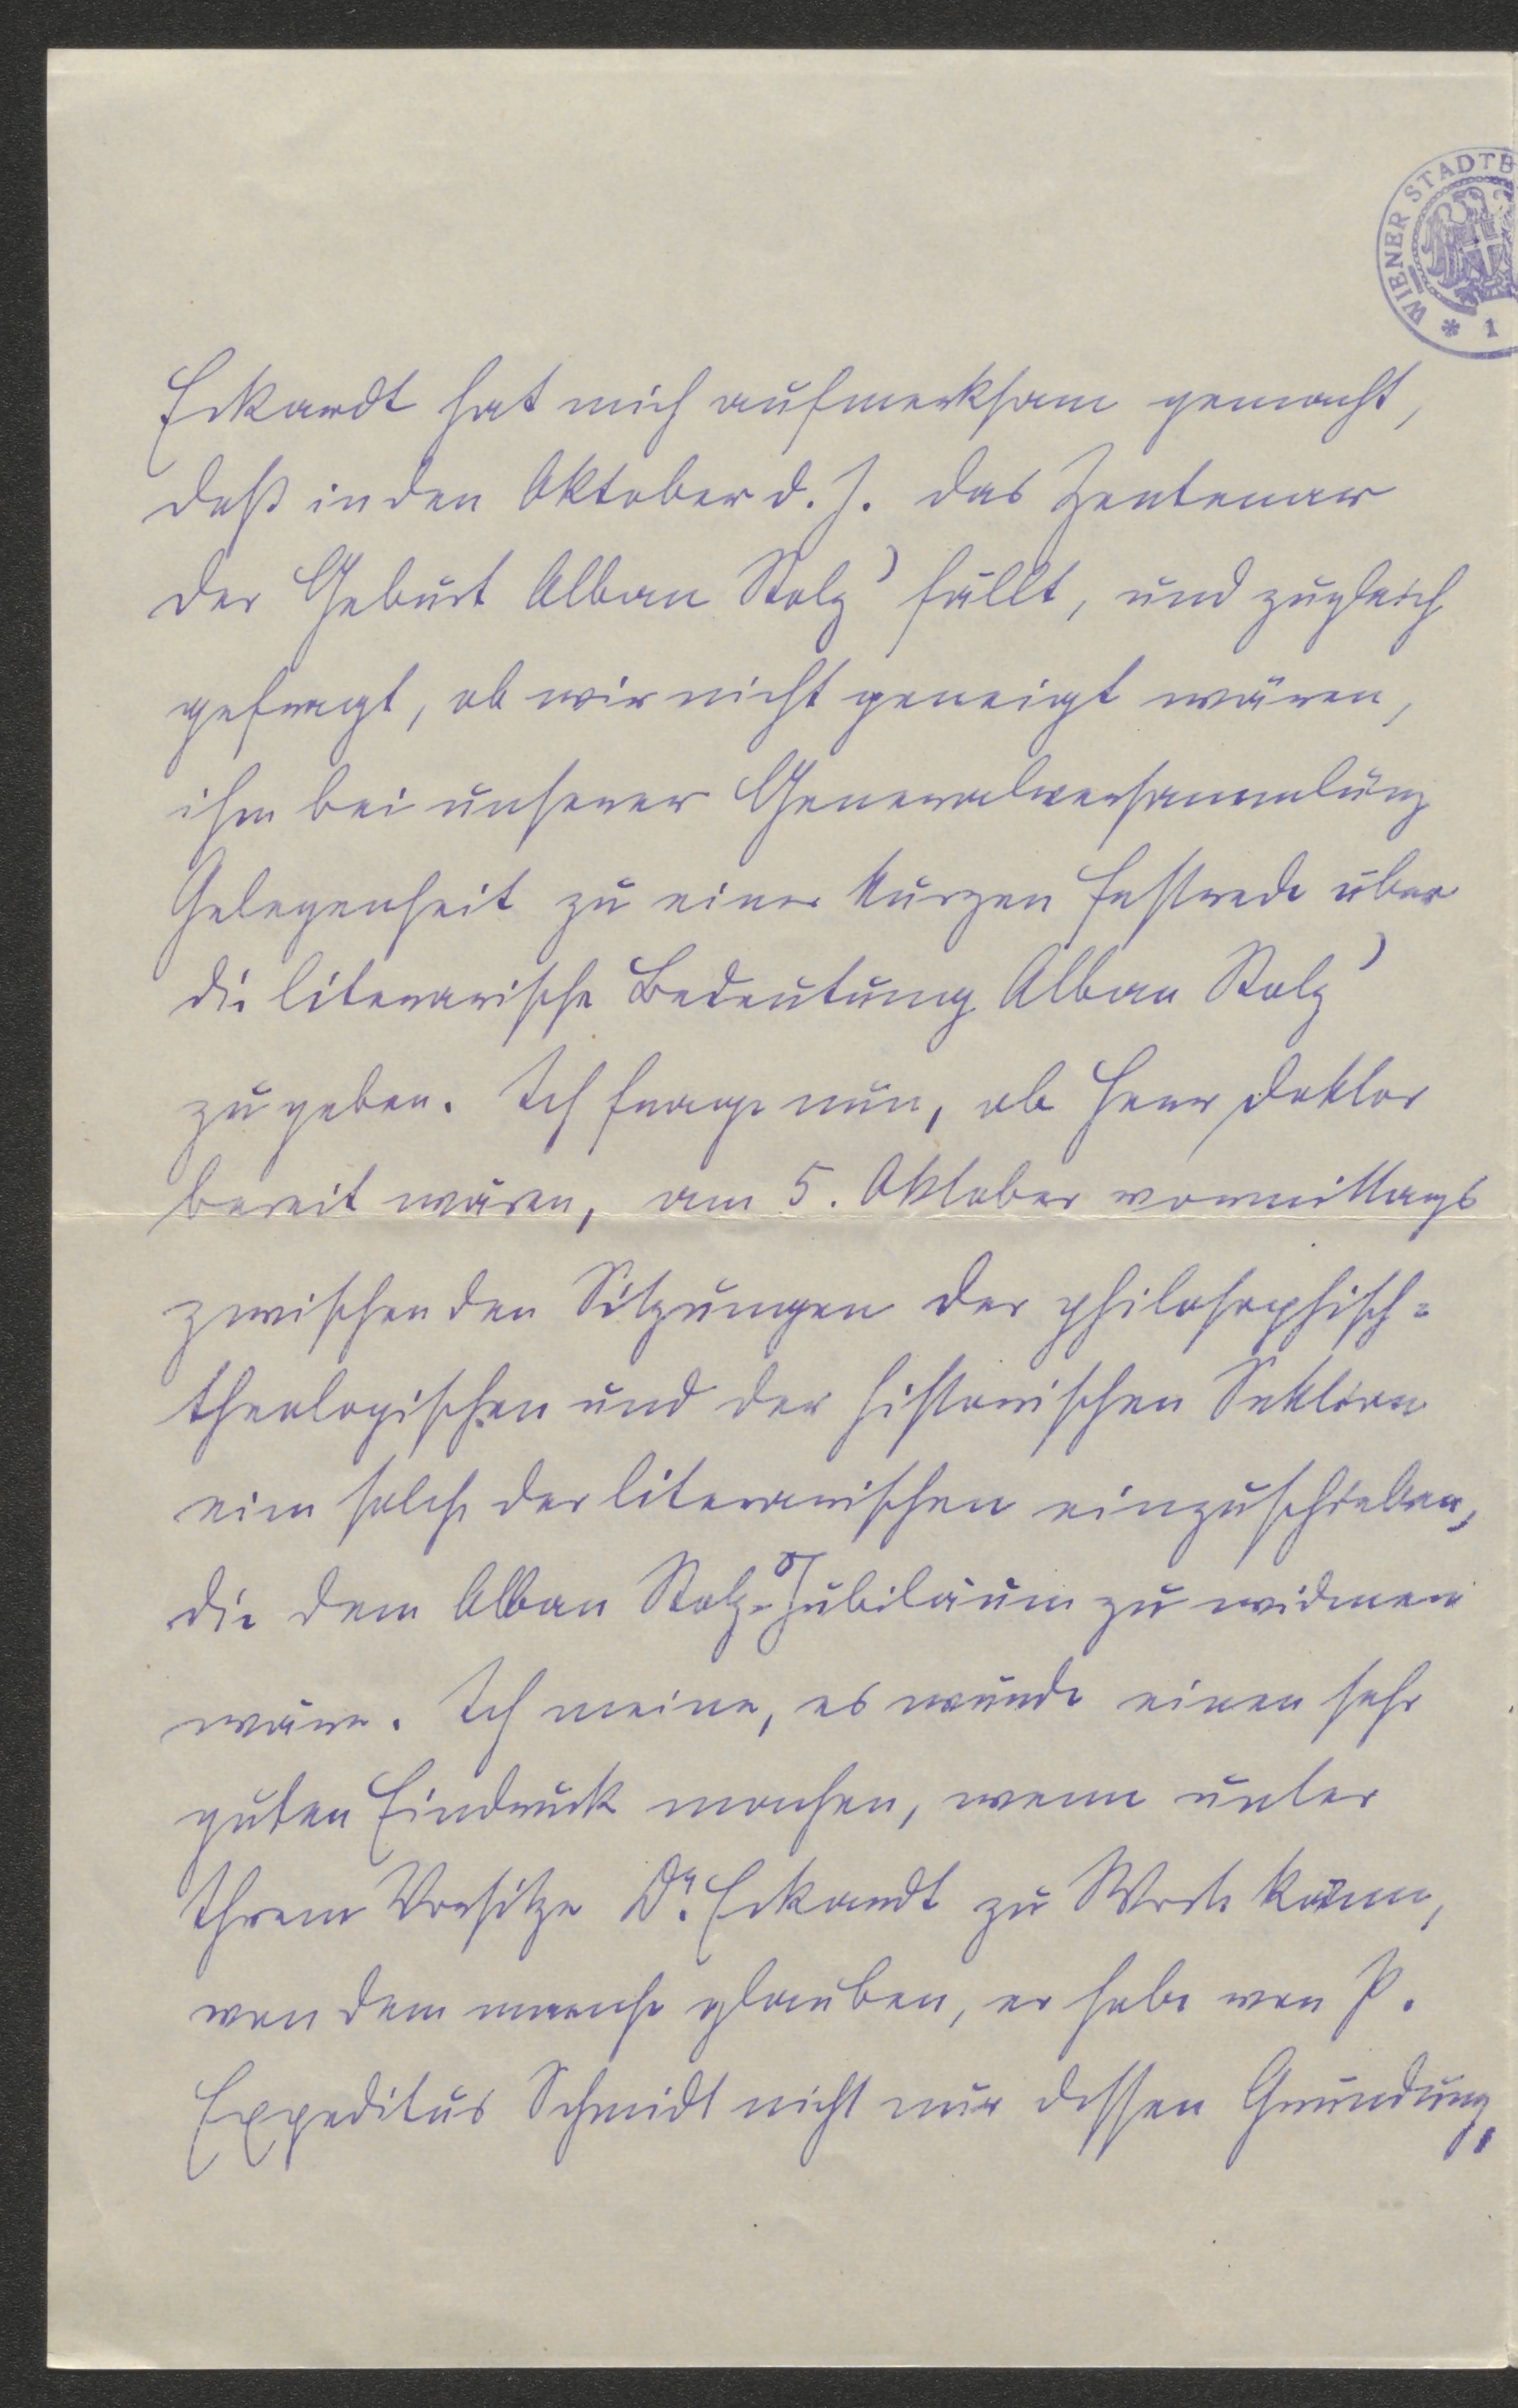 WIENER STADTB
* 1
Eckardt hat mich aufmerksam gemacht,
daß in den Oktober d. J. das Zentenar
der Geburt Alban Stolz' fällt, und zugleich
gefragt, ob wir nicht geneigt wären,
ihm bei unserer Generalversammlung
Gelegenheit zu einer kurzen Festrede über
die literarische Bedeutung Alban Stolz'
zu geben. Ich frage nun, ob Herr Doktor
bereit wären, am 5. Oktober vormittags
zwischen den Sitzungen der philosophisch-
theologischen und der historischen Sektion
eine solche der literarischen einzuschieben,
die dem Alban Stolz-Jubiläum zu widmen
wäre. Ich meine, es würde einen sehr
guten Eindruck machen, wenn unter
Ihrem Vorsitze Dr. Eckardt zu Worte käme,
von dem manche glauben, er habe von P.
Expeditus Schmidt nicht nur dessen Gründung,